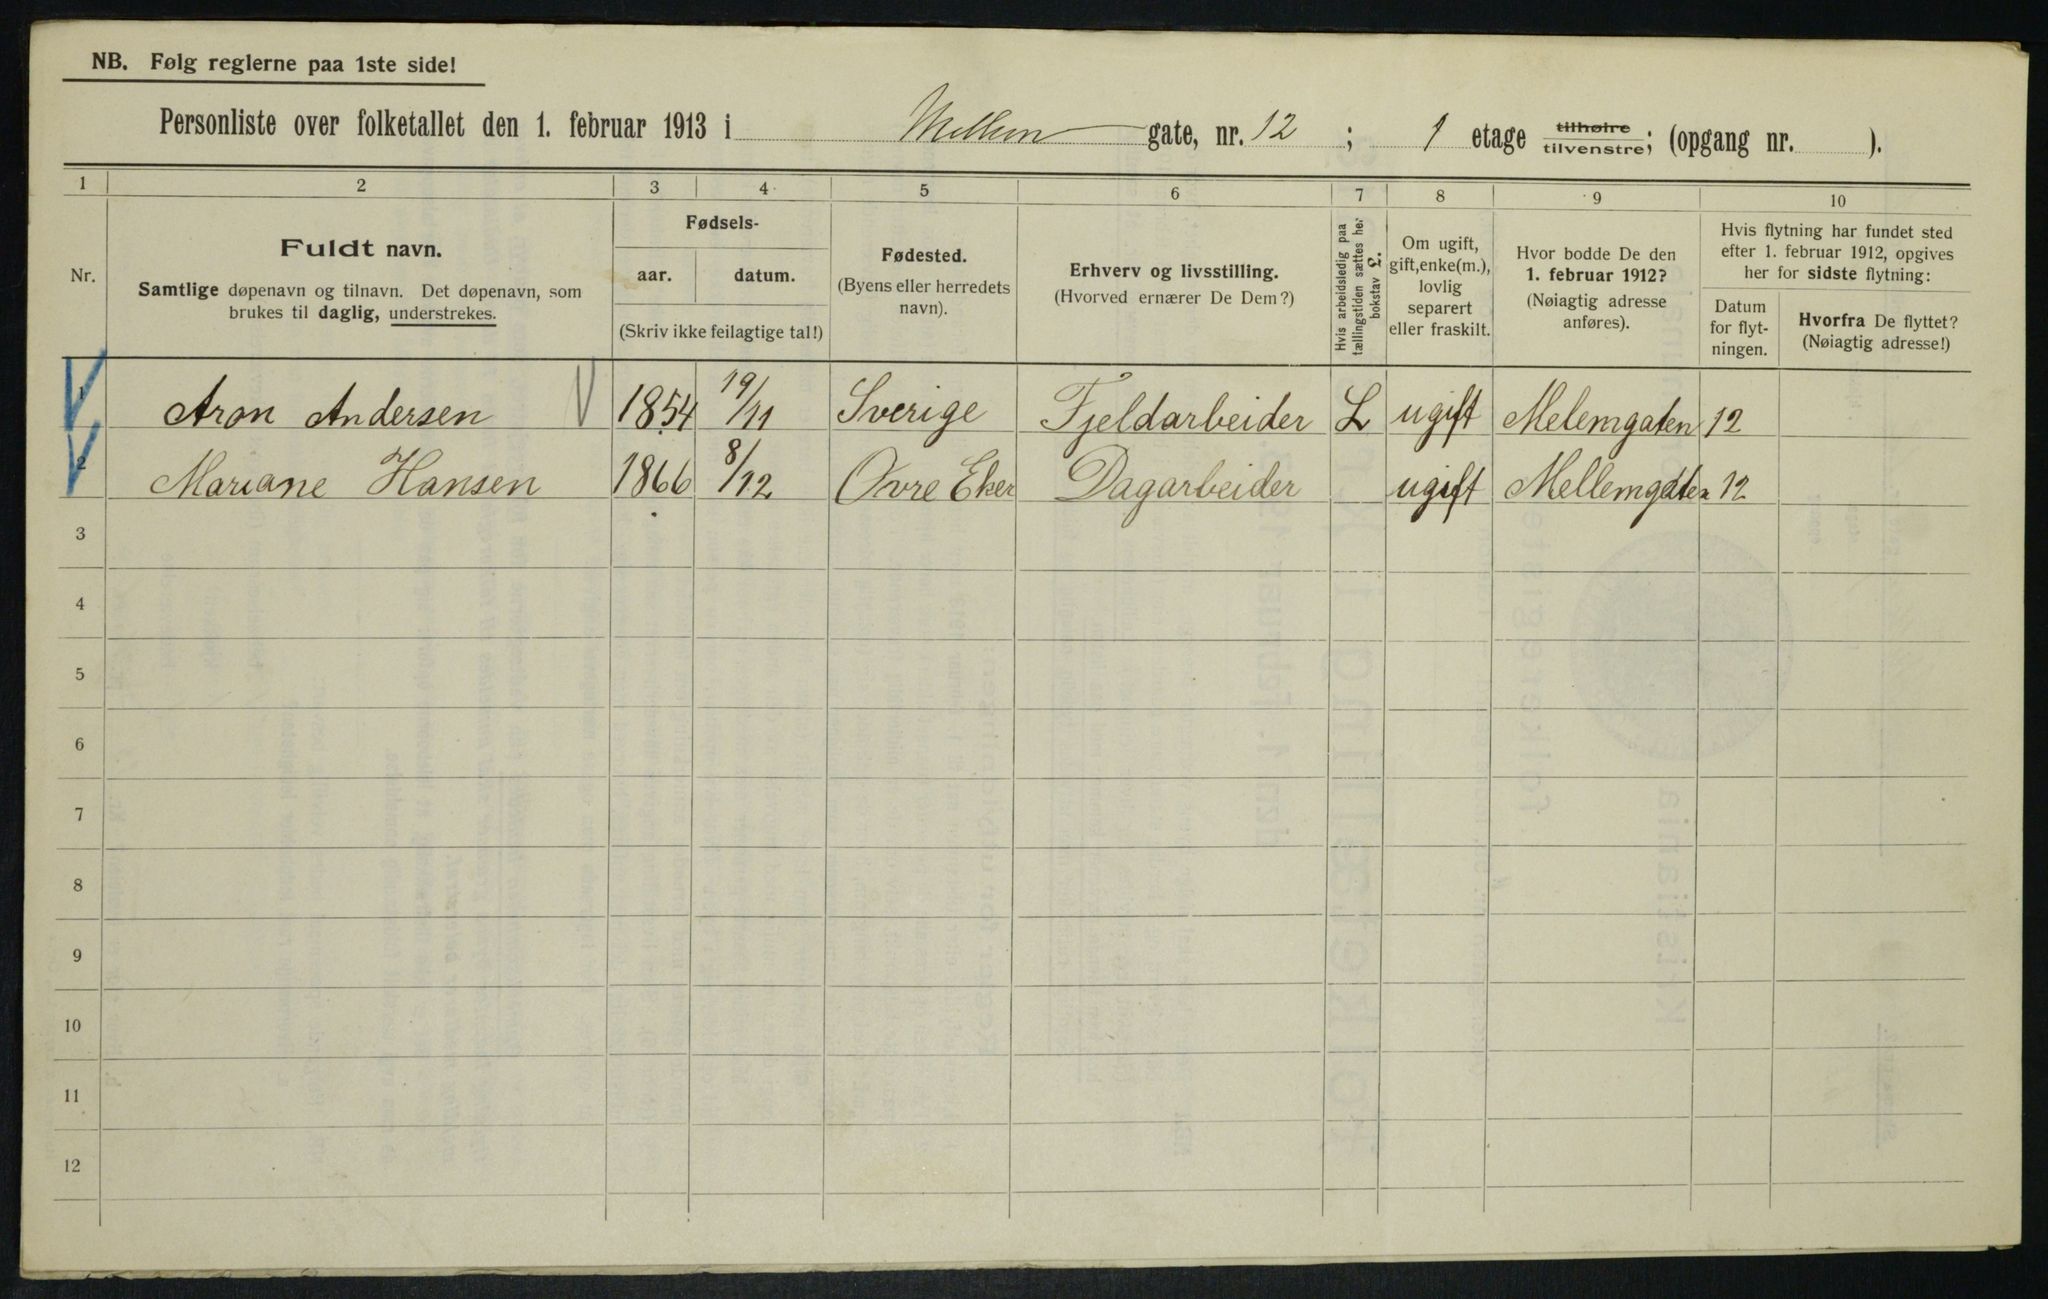 NB. Følg reglerne paa 1ste side!
Personliste over folketallet den 1. februar 1913 i Mellem gate, nr. 12 ; 1 etage tilhøire tilvenstre; (opgang nr. ).
1 2 3 4 5 6 7 8 9 10
Nr.
Fuldt navn.
Samtlige døpenavn og tilnavn. Det døpenavn, som
brukes til daglig, understrekes.
Fødsels-
aar. datum.
(Skriv ikke feilagtige tal!)
Fødested.
(Byens eller herredets
navn).
Erhverv og livsstilling.
(Hvorved ernærer De Dem?)
Hvis arbeidsledig paa
tællingstiden sættes her
bokstav L.
Om ugift,
gift, enke(m.),
lovlig
separert
eller fraskilt.
Hvor bodde De den
1. februar 1912?
(Nøiagtig adresse
anføres).
Hvis flytning har fundet sted
efter 1. februar 1912, opgives
her for sidste flytning:
Datum
for flyt-
ningen.
Hvorfra De flyttet?
(Nøiagtig adresse!)
1 Aron Andersen 1854 19/11 Sverige Fjeldarbeider L ugift Melemgaten 12
2 Mariane Hansen 1866 8/12 Øvre Eker Dagarbeider ugift Mellemgaten 12
3
4
5
6
7
8
9
10
11
12